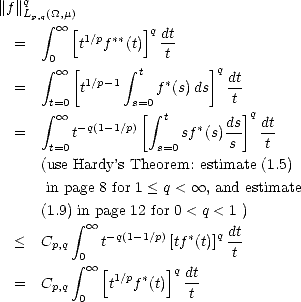 ‖f‖^q_{L_{p,q}(Ω,μ)}
= ∫_0^∞ [t^{1/p} f^{**}(t)]^q dt/t
= ∫_{t=0}^∞ [t^{1/p−1} ∫_{s=0}^t f^*(s) ds]^q dt/t
= ∫_{t=0}^∞ t^{−q(1−1/p)} [∫_{s=0}^t sf^*(s) ds/s]^q dt/t
(use Hardy's Theorem: estimate (1.5)
in page 8 for 1 ≤ q < ∞, and estimate
(1.9) in page 12 for 0 < q < 1 )
≤ C_{p,q} ∫_0^∞ t^{−q(1−1/p)} [tf^*(t)]^q dt/t
= C_{p,q} ∫_0^∞ [t^{1/p} f^*(t)]^q dt/t